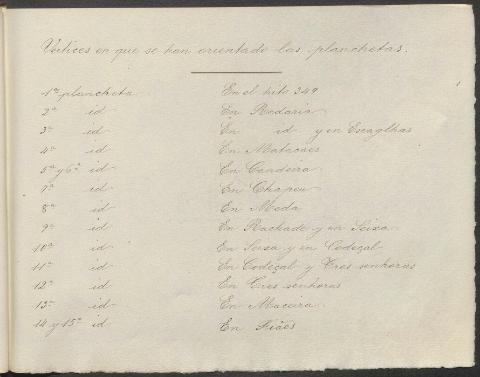 Vertices en que se han orientado las planchetas.
1ª plancheta En el hito 349
2ª id En Rodario
3ª id En id y en Escaglhas
4ª id En Matacães
5ª y 6ª id En Candeira
7ª id En Chapeu
8ª id En Meda
9ª id En Rachado y en Seixa
10ª id En Seixa y en Codeçal
11ª id En Codeçal y Tres senhoras
12ª id En Tres senhoras
13ª id En Maceira
14 y 15ª id En Fiães